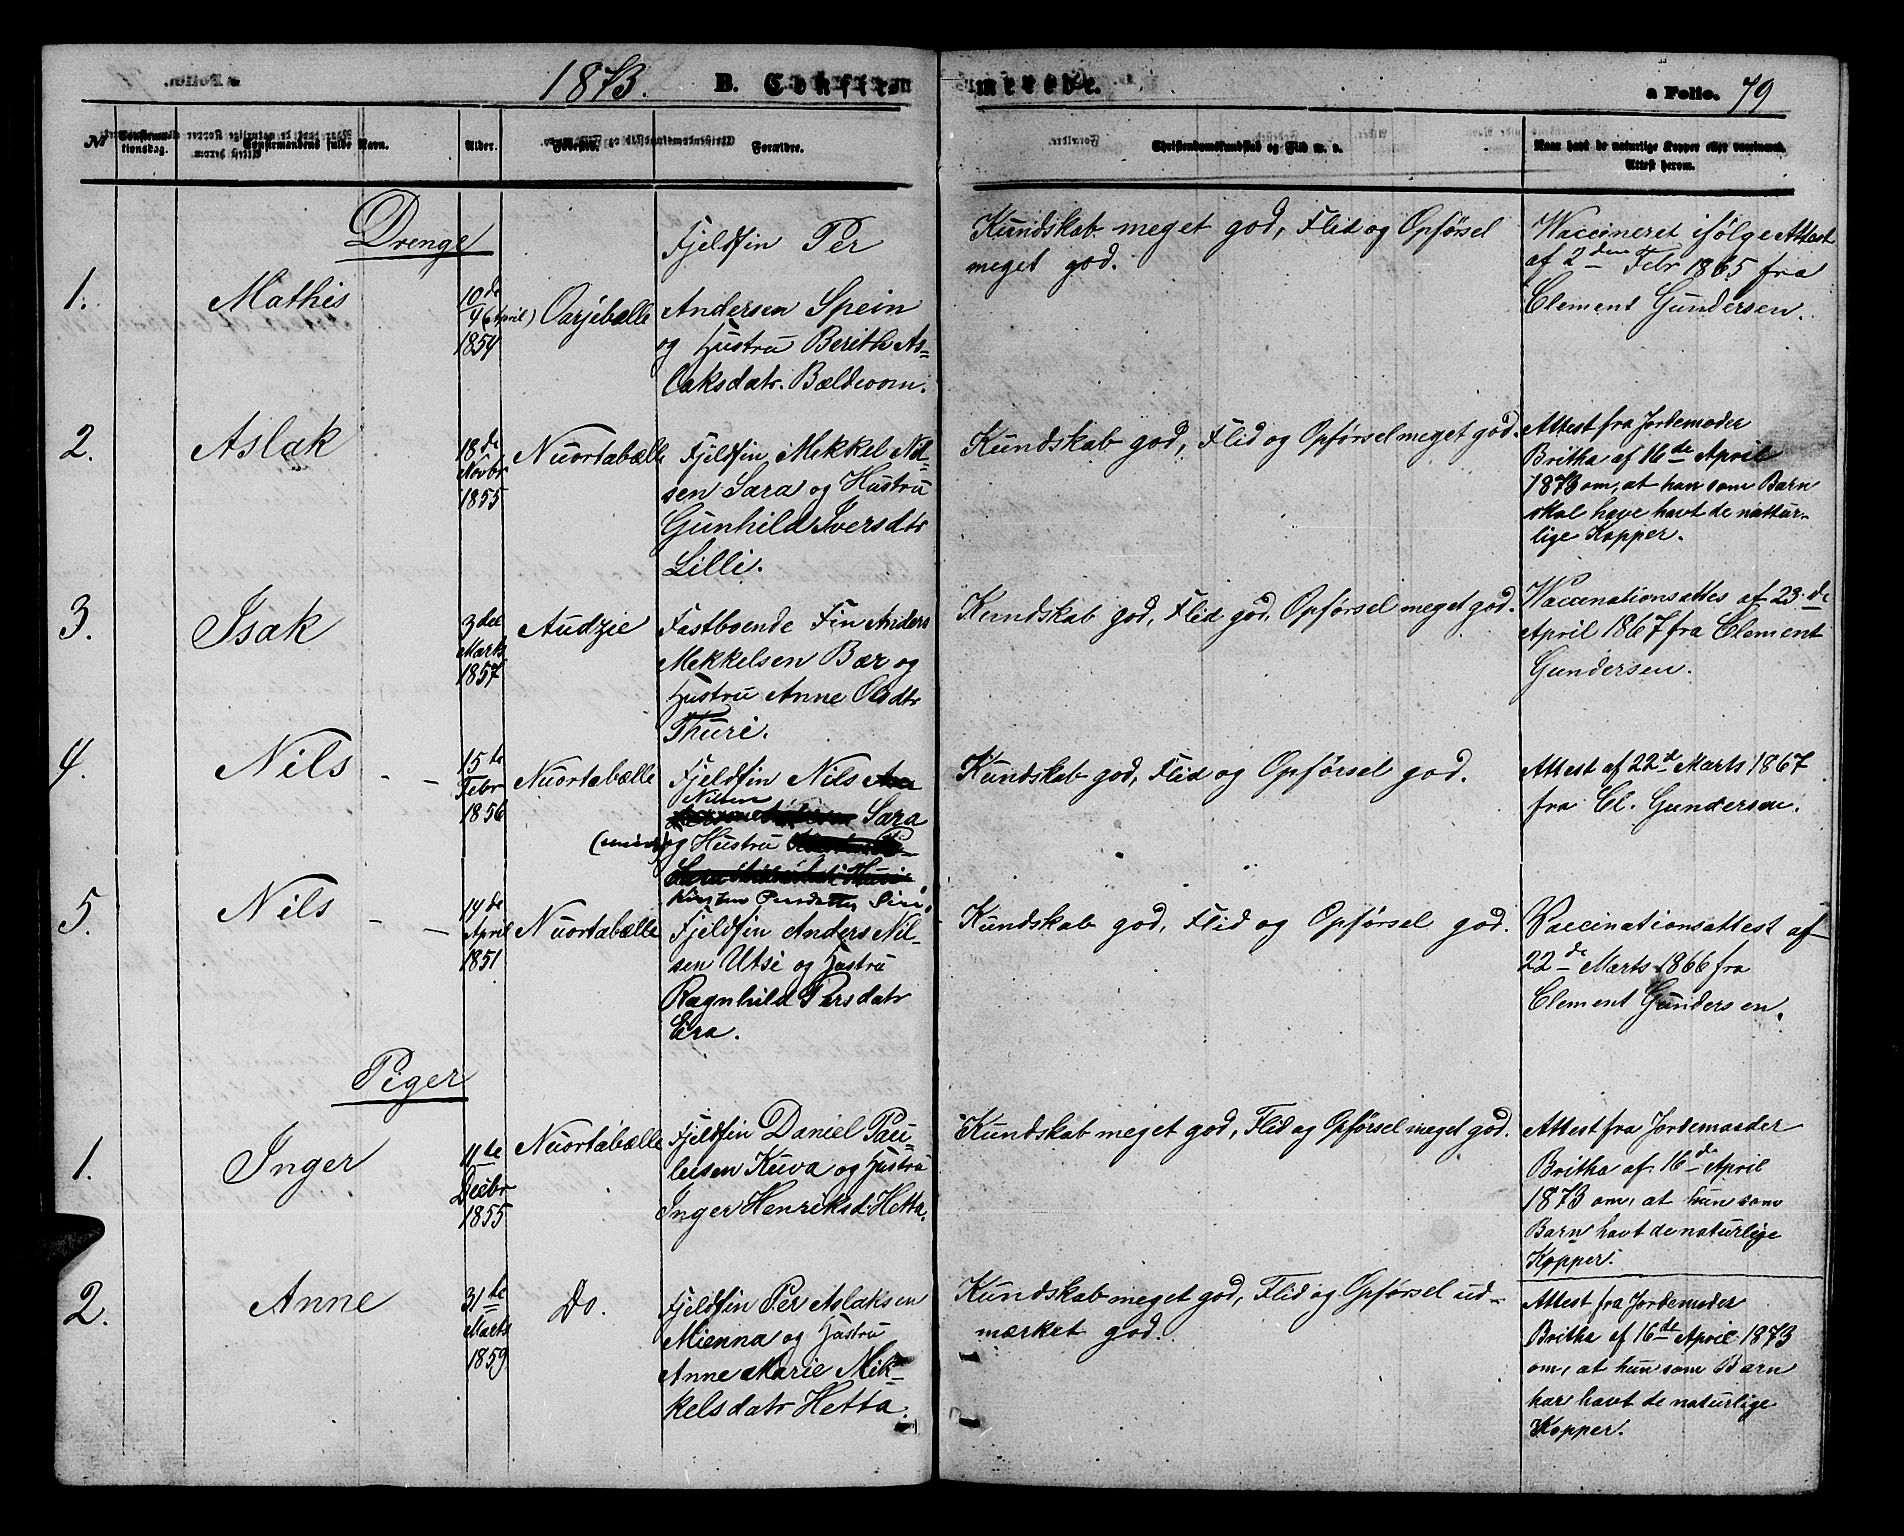 1873. B. Confirmerede. a Folio. 79
No Confirmationsdag. Confirmandens fulde Navn. Alder. Fødested. Forældre. Christendomskundskab og Flid m. v. Naar havt de naturlige Kopper eller vaccineret.
Attest herom.
Drenge
1. Mathis
10de
4 (April)
1854
Oarjebælle
Fjeldfin Per
Andersen Spein
og Hustru Berith As=
laksdatr. Bældevom.
Kundskab meget god, Flid og Opførsel
meget god.
Waccineret ifølge Attest
af 2den Febr 1865 fra
Clement Gundersen.
2. Aslak
18de
Novbr
1855
Nuortabælle
Fjeldfin Mekkel Nil=
sen Sara og Hustru
Gunhild Iversdtr
Lilli.
Kundskab god, Flid og Opførsel meget god.
Attest fra Jordemoder
Britha af 16de April
1873 om, at han som Barn
skal have havt de nattur-
lige Kopper.
3. Isak
3die
Marts
1857
Audzie
Fastboende Fin Anders
Mekkelsen Bær og
Hustru Anne Olsdtr
Thuri.
Kundskab god, Flid god, Opførsel meget god.
Waccenationsattes af 23de
April 1867 fra Clement
Gundersen.
4. Nils - -
15te
Febr
1856
Nuortabælle
Fjeldfin Nils
Nilsen
Sara
og Hustru
Kirsten Persdatter Siri,
Kundskab god, Flid og Opførsel god.
Attest af 22de Marts 1867
fra Cl. Gundersen.
5. Nils - -
14de
April
1851
Nuortabælle
Fjeldfin Anders Nil-
sen Utsi og Hustru
Ragnhild Persdatr
Era.
Kundskab god, Flid og Opførsel god.
Vaccinationsattest af
22de Marts 1866 fra
Clement Gundersen.
Piger
1. Inger
11te
Decbr
1855
Nuortabælle
Fjeldfin Daniel Pau-
lesen Kuva og Hustru
Inger Henriksd. Hetta.
Kundskab meget god, Flid og Opførsel meget god.
Attest fra Jordemoeder
Britha af 16de April
1873 om, at hun som
Barn havt de naturlige
Kopper.
2. Anne
31te
Marts
1859
Do.
Fjeldfin Per Aslaksen
Mienna og Hustru
Anne Marie Mik-
kelsdatr Hetta.
Kundskab meget god, Flid og Opførsel ud-
mærket god.
Attest fra Jordemoder
Britha af 16de April 1873
om, at hun som Barn
har havt de naturlige
Kopper.